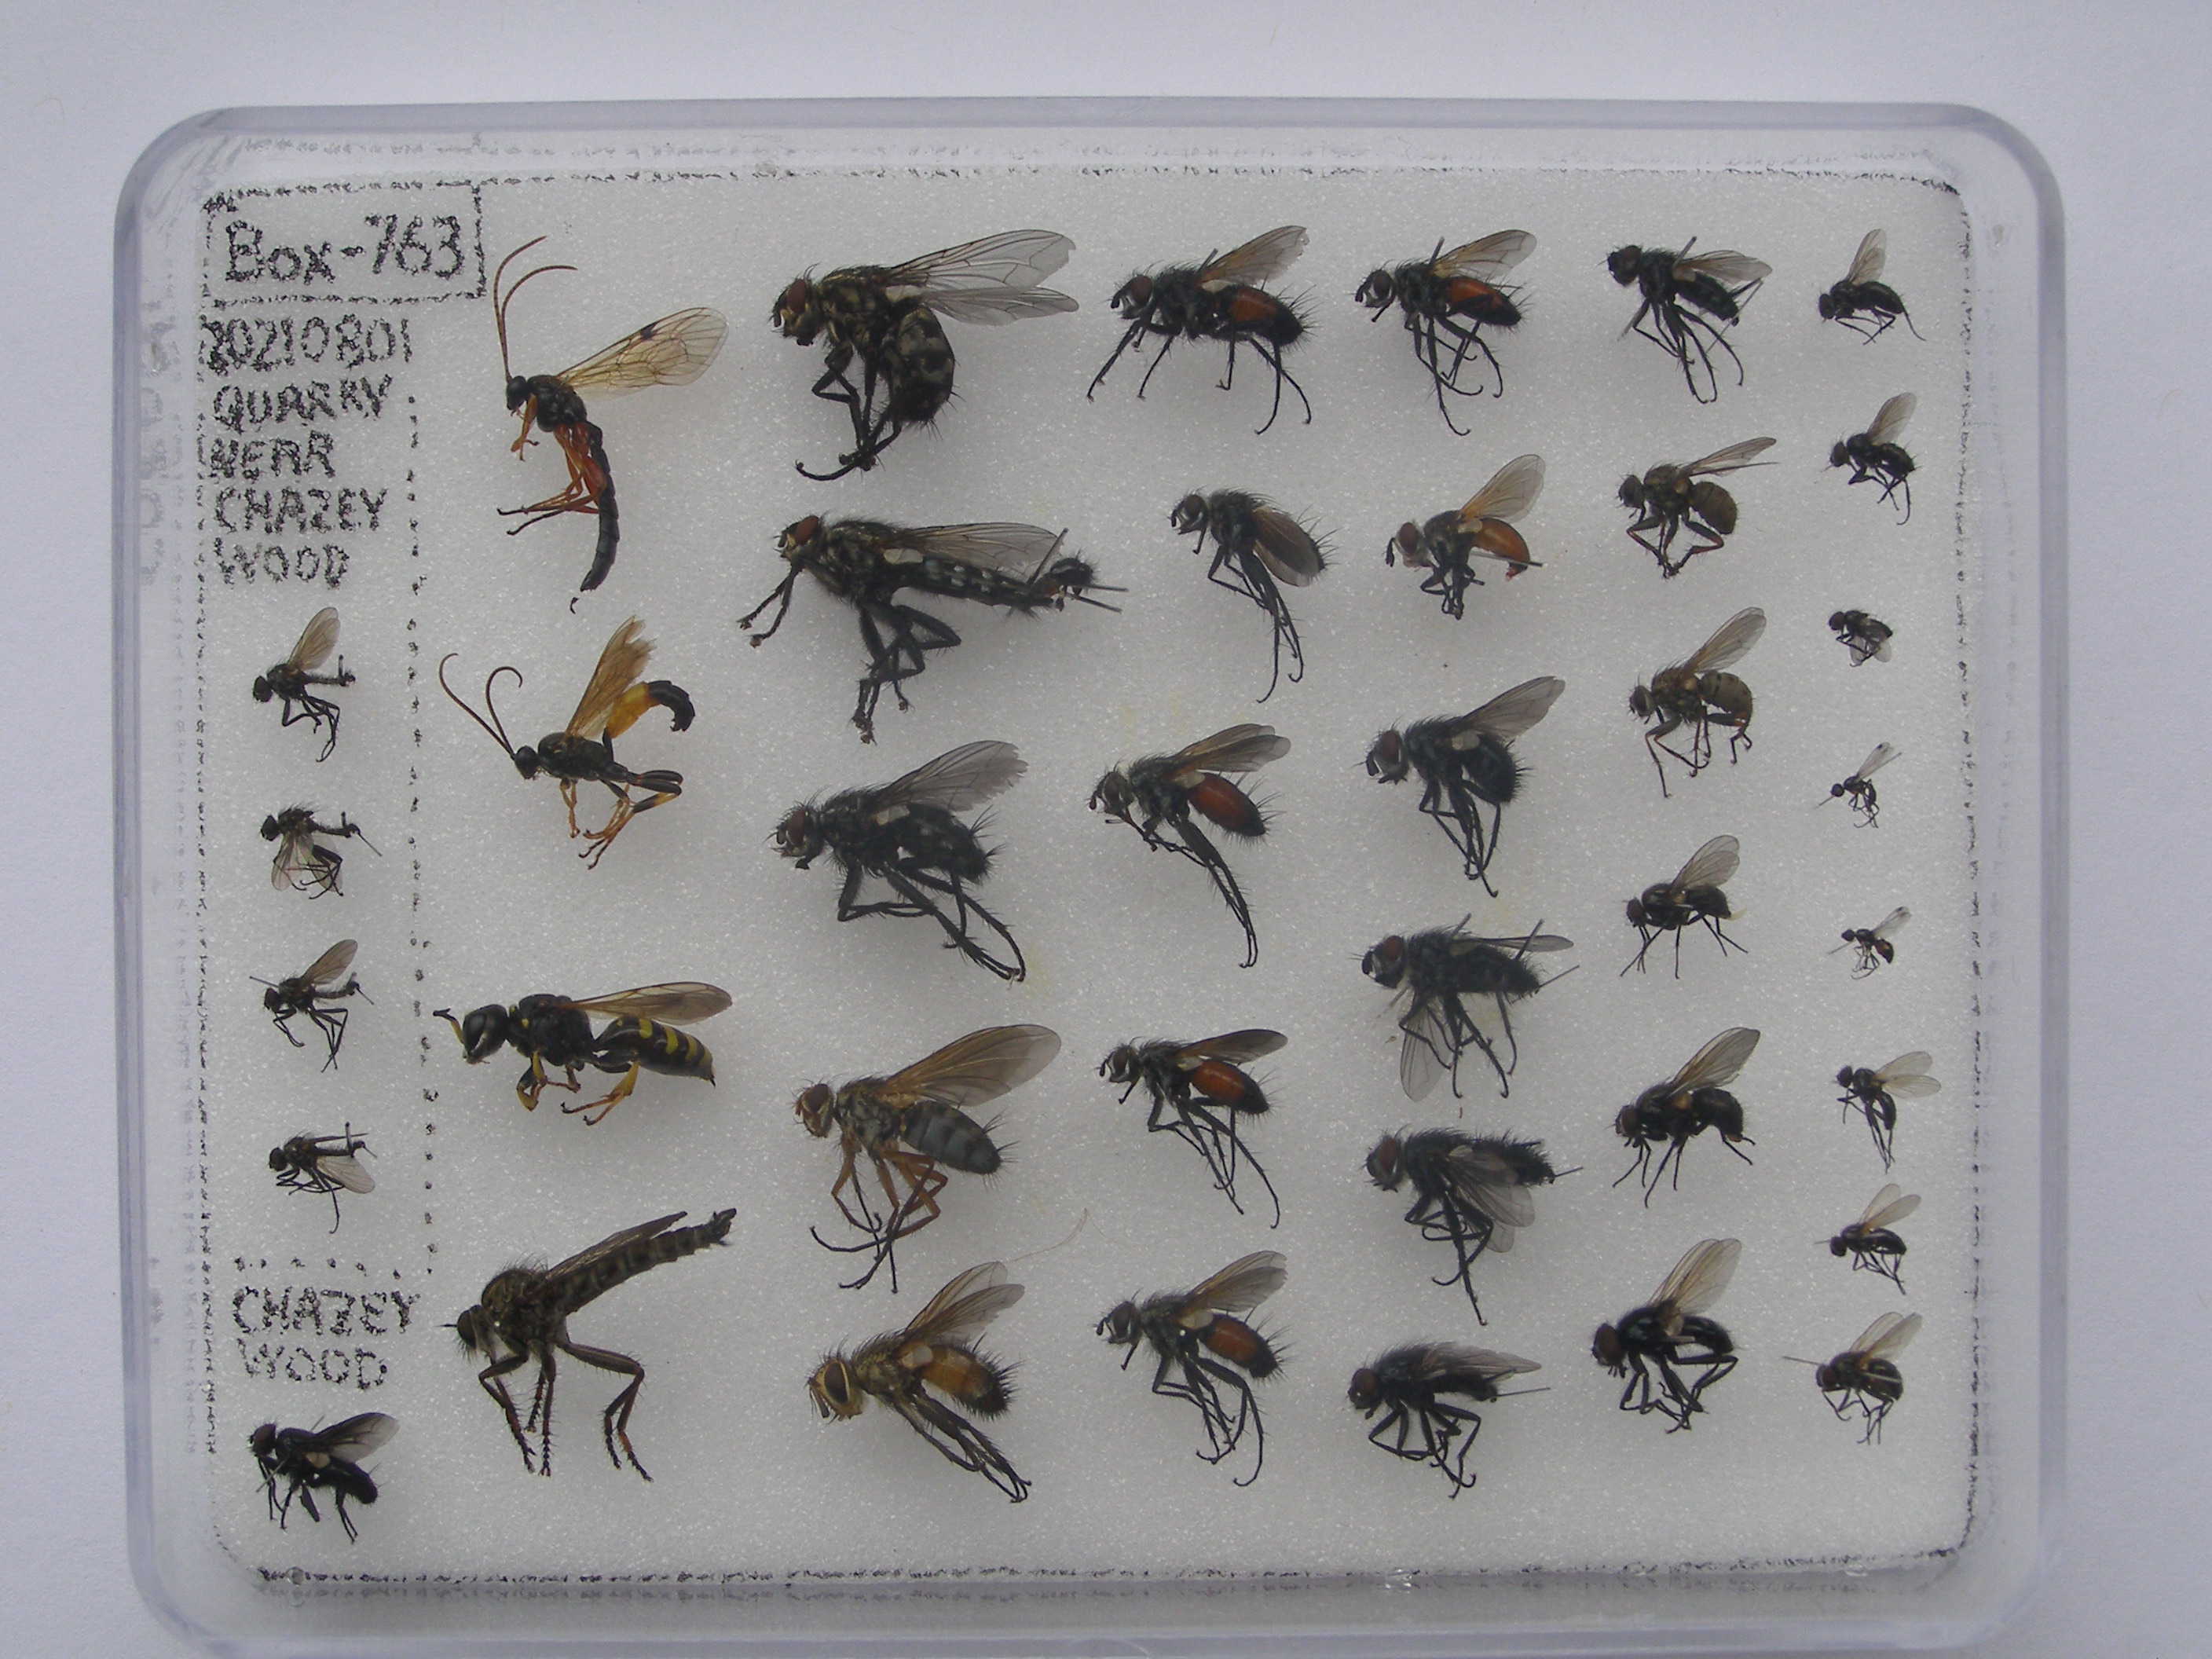 Box-763
20210801
QUARRY
NEAR
CHAZEY
WOOD
CHAZEY
WOOD